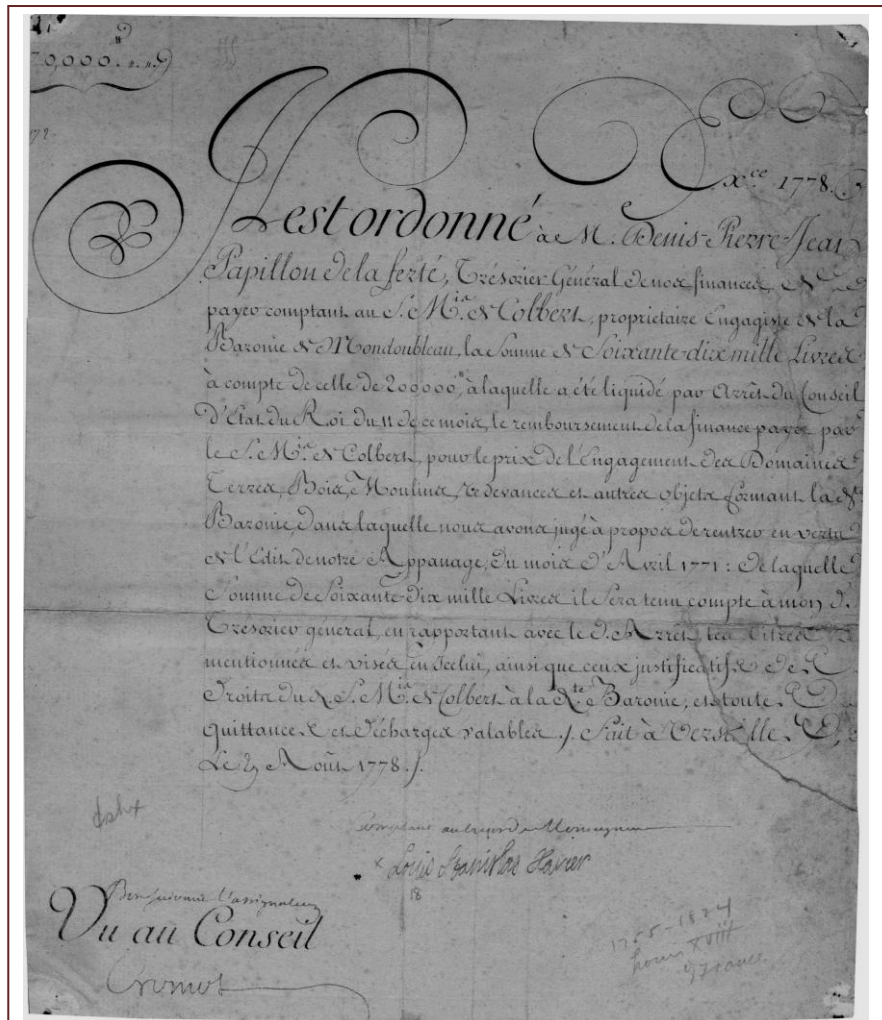 70,000.
Ex.ce 1778.
Il est ordonné à M. Denis-Pierre-Jean
Papillon de la ferté, Trésorier Général de nos finances, de
payer comptant au S. M.is de Colbert, proprietaire Engagiste de la
Baronie de Mondoubleau, la Somme de Soixante-dix mille Livres
à compte de celle de 200000, à laquelle a été liquidé par Arrêt du Conseil
d'Etat du Roi du 11 de ce mois, le remboursement de la finance payée par
le S. M.is de Colbert, pour le prix de l'Engagement des Domaines
Terres, Bois, Moulins, Redevances et autres objets formant la d.
Baronie, dans laquelle nous avons jugé à propos de rentrer en vertu
de l'Edit de notre Appanage, du mois d'Avril 1771: De laquelle
Somme de Soixante-Dix mille Livres il sera tenu compte à mon d.
Trésorier général, en rapportant avec le d. Arrêt les titres
mentionnés et visés en Icelui, ainsi que ceux justificatifs de
Droits du d. S. M.is de Colbert à la d.te Baronie, et toute
quittances et décharges valables ./. Fait à Versailles
Le Août 1778./.
Monseigneur
x Louis Stanislas Xavier
18
Bon suivant l'assignation
Vu au Conseil
Cromot
1755-1824
Louis XVIII
of France